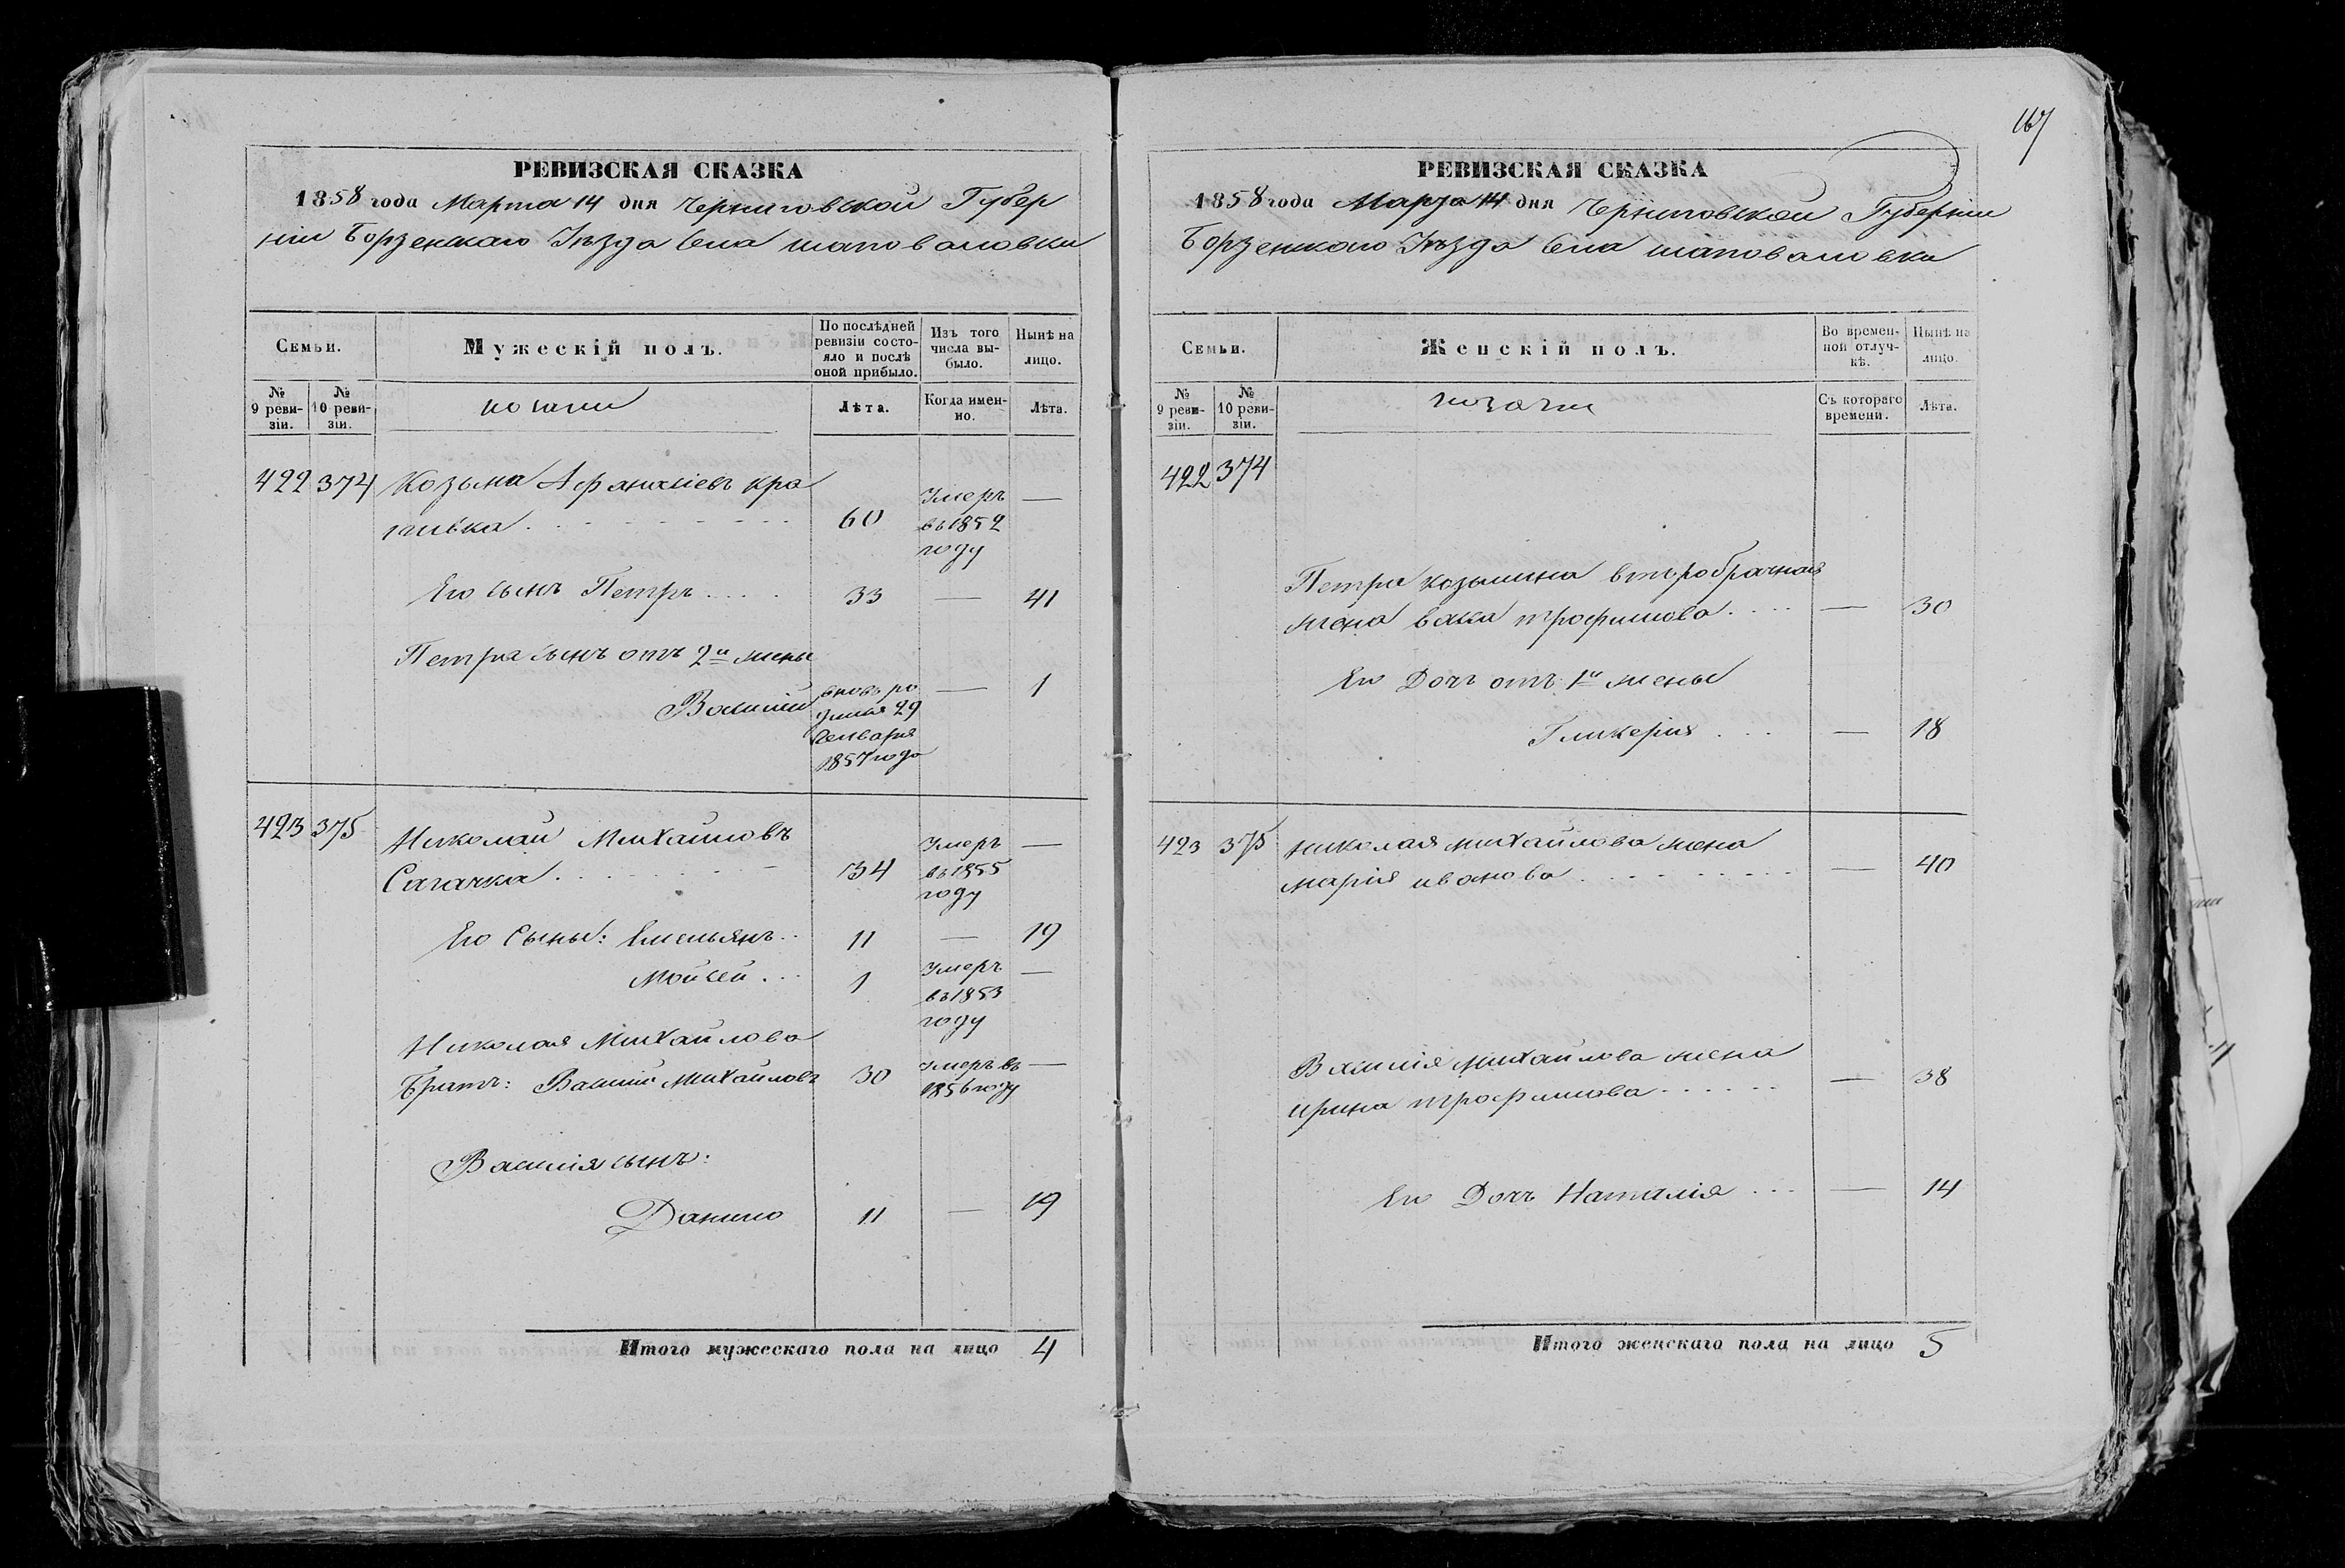 167
РЕВИЗСКАЯ СКАЗКА
1858 года Марта 14 дня Черниговской Губер
ніи Борзенскаго Уѣзда Села шаповаловки
Семьи.
Мужескій полъ.
По послѣдней ревизіи состояло и послѣ оной прибыло.
Изъ того числа выбыло.
Нынѣ на лицо.
№ 9 ревизіи.
№ 10 ревизіи.
козаки
Лѣта.
Когда именно.
Лѣта.
422 374 Козьма Афанасіевъ
60 Умеръ въ 1852 году —
Его сынъ Петръ . . . . 33 — 41
Петра сынъ отъ 2й жены
Василій вновь родился 29 Генваря 1857 года — 1
423 375 Николай Михайловъ
Сагачка . . . . . . 34 Умеръ въ 1855 году —
Его Сыны: Емельянъ . . 11 — 19
Мойсей . . . 1 Умеръ въ 1853 году —
Николая Михайлова
Братъ: Василій Михайловъ 30 Умеръ въ 1856 году —
Василія сынъ:
Данило 11 — 19
Итого мужескаго пола на лицо 4
РЕВИЗСКАЯ СКАЗКА
1858 года Марта 14 дня Черниговской Губерніи
Борзенскаго Уѣзда Села шаповаловки
Семьи.
Женскій полъ.
Во временной отлучкѣ.
Нынѣ на лицо.
№ 9 ревизіи.
№ 10 ревизіи.
козачки
Съ котораго времени.
Лѣта.
422 374
Петра козьмина второбрачная
жена трофимова . . . . — 30
Его Дочь отъ 1й жены
Гликерія . . . — 18
423 375 николая михайлова жена
марія иванова . . . . . . — 40
Василія михайлова жена
ирина трофимова . . . . . . — 38
Его Дочь Наталія . . . — 14
Итого женскаго пола на лицо 5